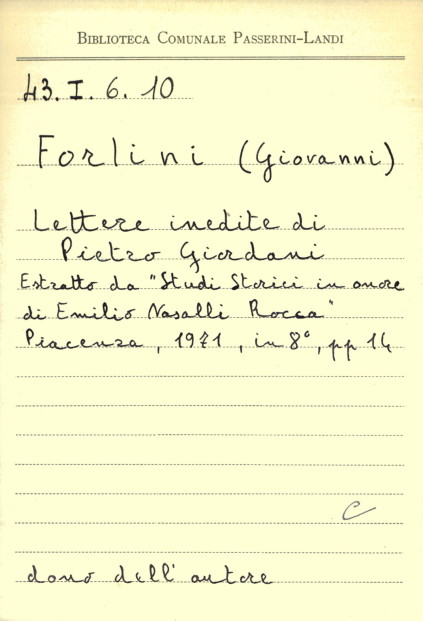 BIBLIOTECA COMUNALE PASSERINI-LANDI
43. I. 6. 10
Forlini (Giovanni)
Lettere inedite di
Pietro Giordani
Estratto da "Studi Storici in onore
di Emilio Nasalli Rocca"
Piacenza, 1971, in 8°, pp 14
C
dono dell'autore